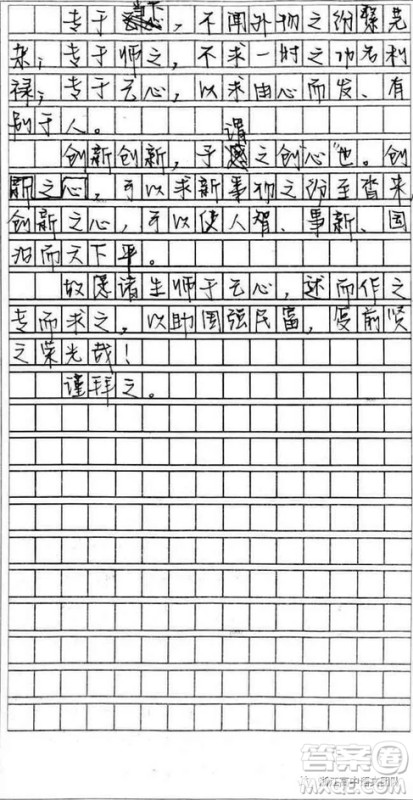 专于当下，不闻外物之纷繁芜
杂；专于师之，不求一时之功名利
禄；专于己心，以求由心而发、有
别于人。
创新创新，予谓之创“心”也。创
新之心，可以求新事物之纷至沓来，
创新之心，可以使人智、事新、国
治而天下平。
故愿诸生师于己心，述而作之
专而求之，以助国强民富，复前贤
之荣光哉！
谨拜之。
答案圈